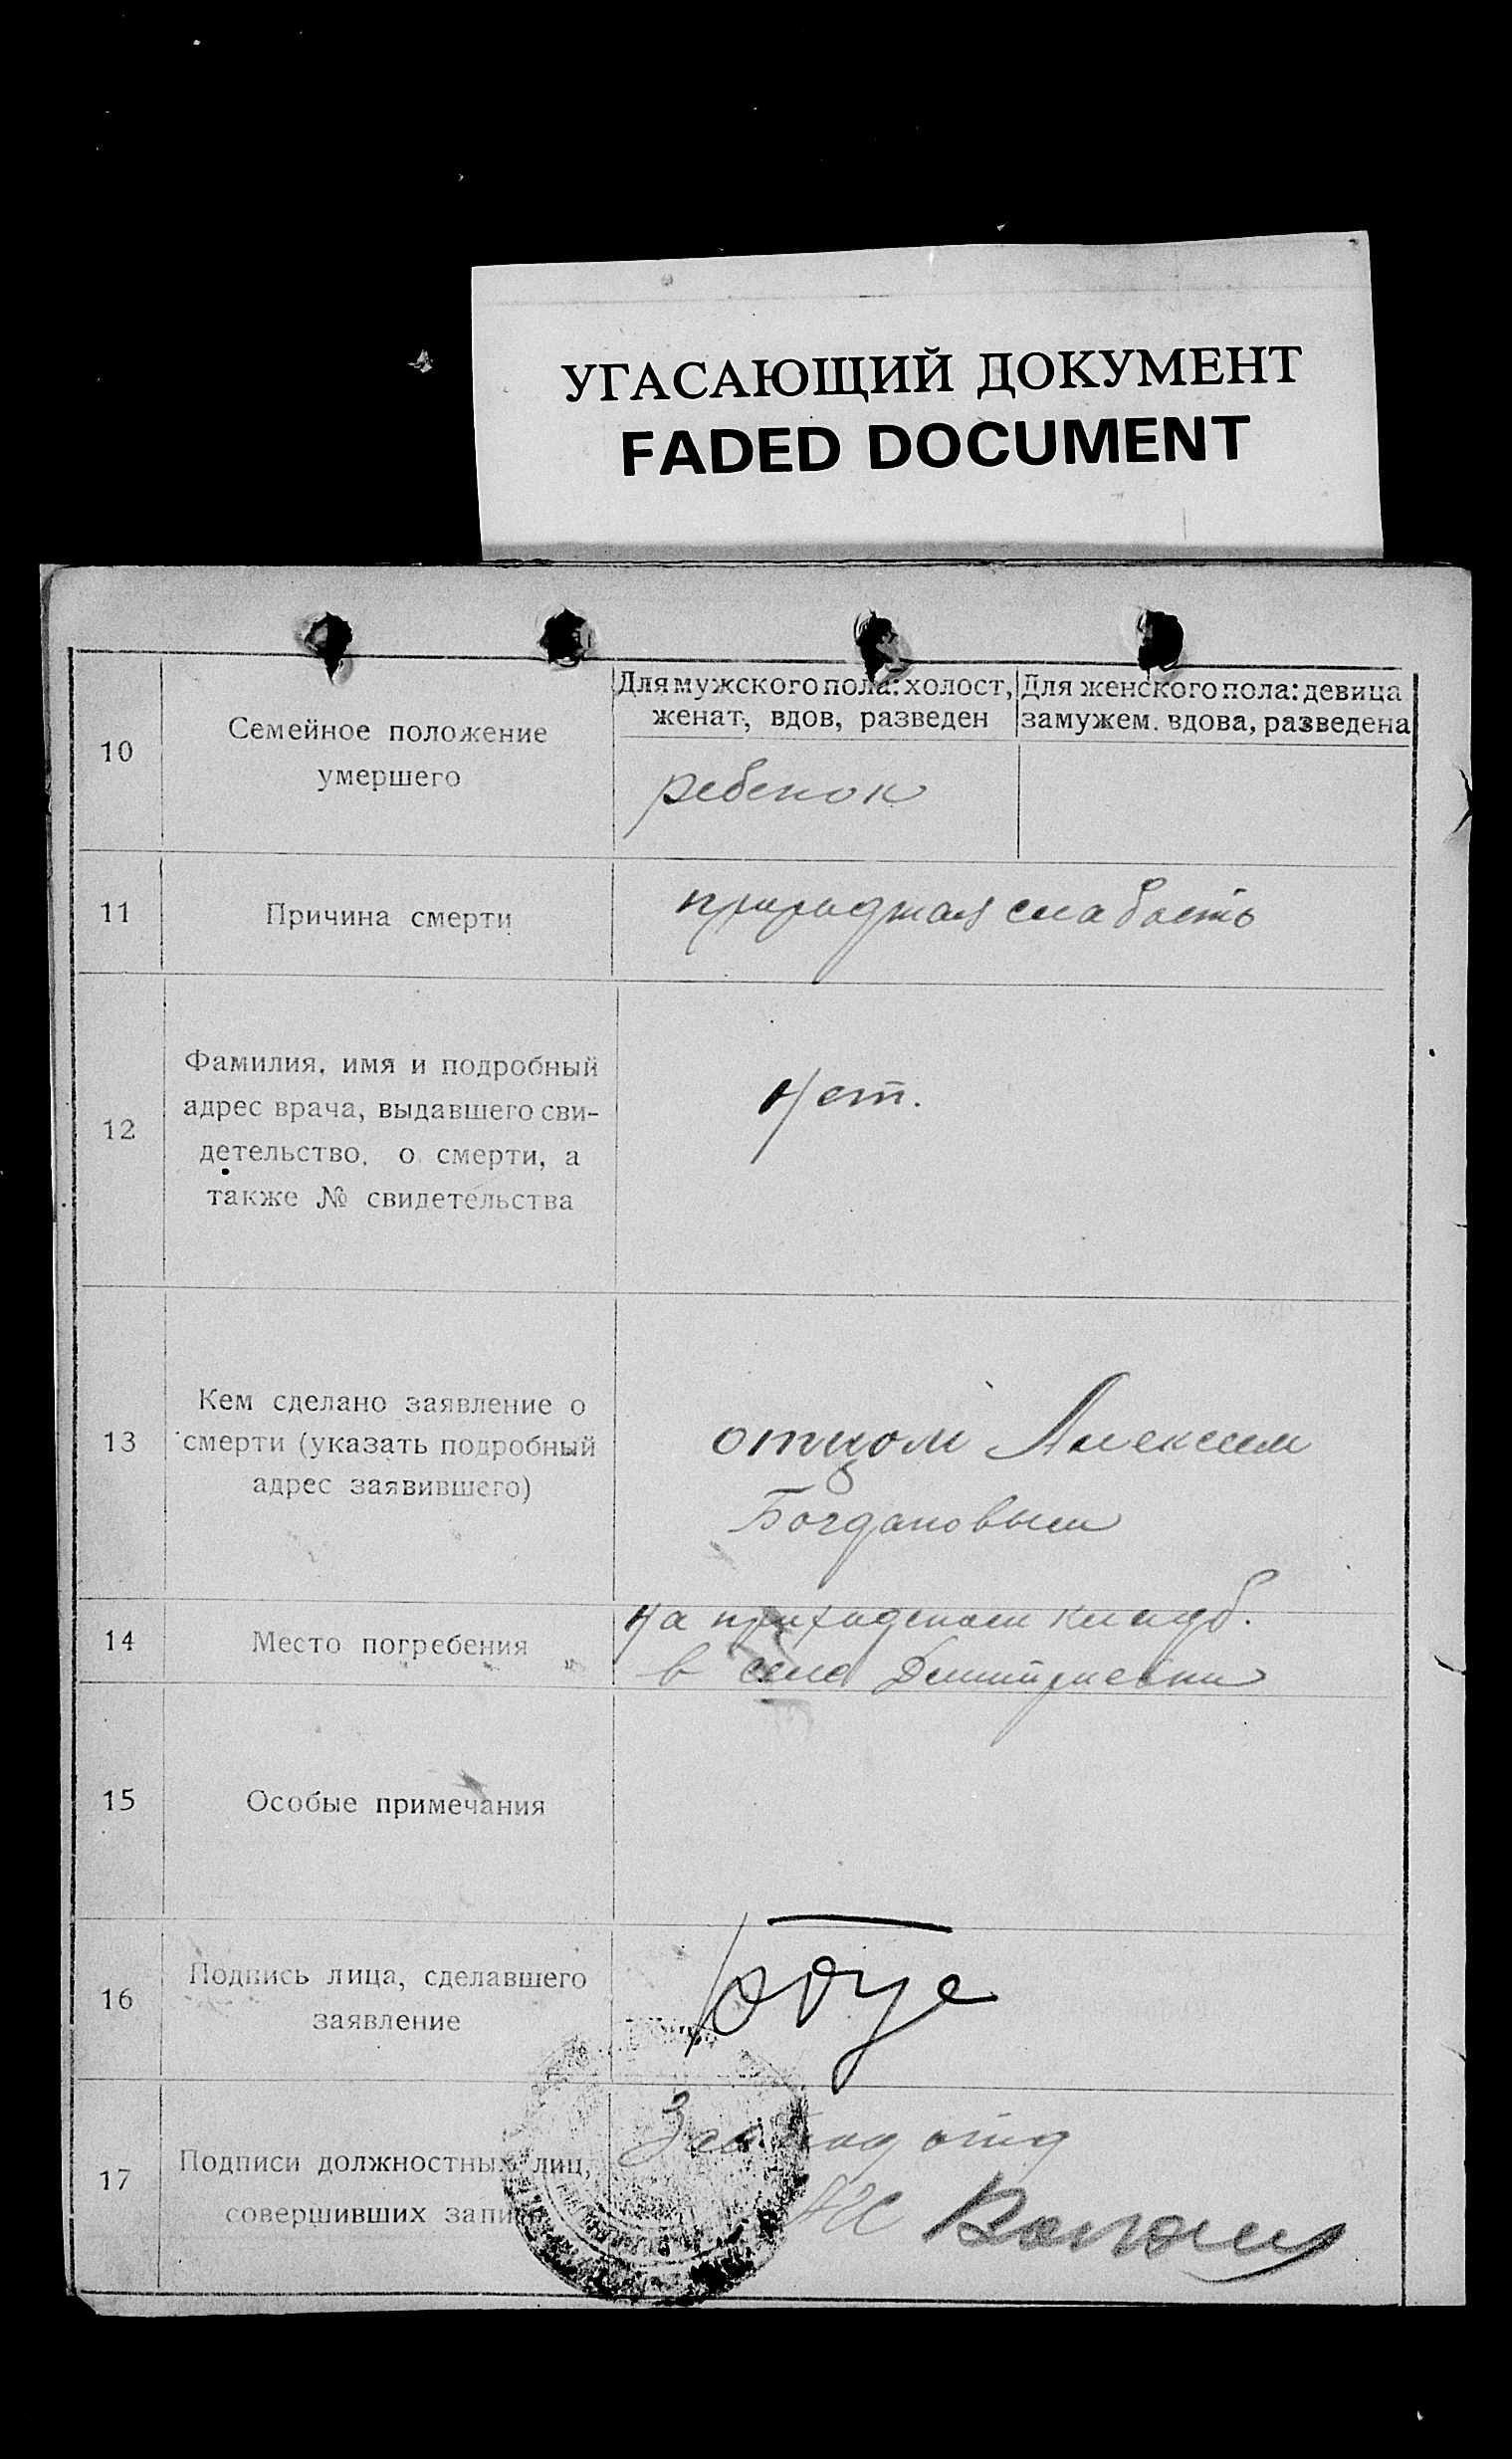 УГАСАЮЩИЙ ДОКУМЕНТ
FADED DOCUMENT
10
Семейное положение
умершего
Для мужского пола: холост,
женат, вдов, разведен
Для женского пола: девица
замужем. вдова, разведена
ребенок
11
Причина смерти
природная слабость
12
Фамилия, имя и подробный
адрес врача, выдавшего сви-
детельство, о смерти, а
также № свидетельства
Нет.
13
Кем сделано заявление о
смерти (указать подробный
адрес заявившего)
отцом Алексеем
Богдановым
14
Место погребения
На приходском кладб.
в село Дмитриевки
15
Особые примечания
16
Подпись лица, сделавшего
заявление
17
Подписи должностных лиц,
совершивших запись